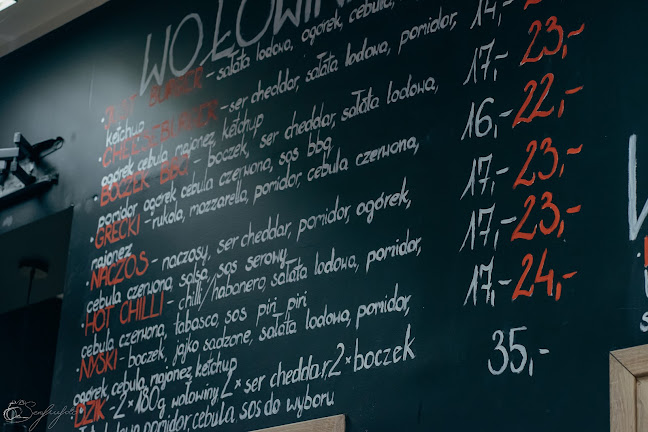 WOŁOWIN
BURGER - sałata lodowa, ogórek, cebula, 14,-
ketchup 23,-
• CHEESEBURGER - ser cheddar, sałata lodowa, pomidor, 17,-
ogórek, cebula, majonez, ketchup 22,-
• BOCZEK BBQ - boczek, ser cheddar, sałata lodowa, 16,-
pomidor, ogórek, cebula czerwona, sos bbq 23,-
• GRECKI - rukola, mozzarella, pomidor, cebula czerwona, 17,-
majonez 23,-
• NACZOS - naczosy, ser cheddar, pomidor, ogórek, 17,-
cebula czerwona, salsa, sos serowy 24,-
• HOT CHILLI - chilli/habanero, sałata lodowa, pomidor, 17,-
cebula czerwona, tabasco, sos piri piri
• NYSKI - boczek, jajko sadzone, sałata lodowa, pomidor,
ogórek, cebula, majonez, ketchup 35,-
• DZIK - 2×180g wołowiny 2× ser cheddar, 2×boczek
lodowa, pomidor, cebula, sos do wyboru